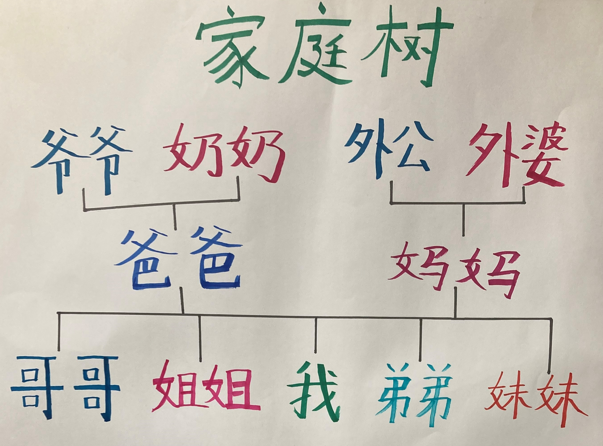 家庭树
爷爷 奶奶 外公 外婆
爸爸 妈妈
哥哥 姐姐 我 弟弟 妹妹